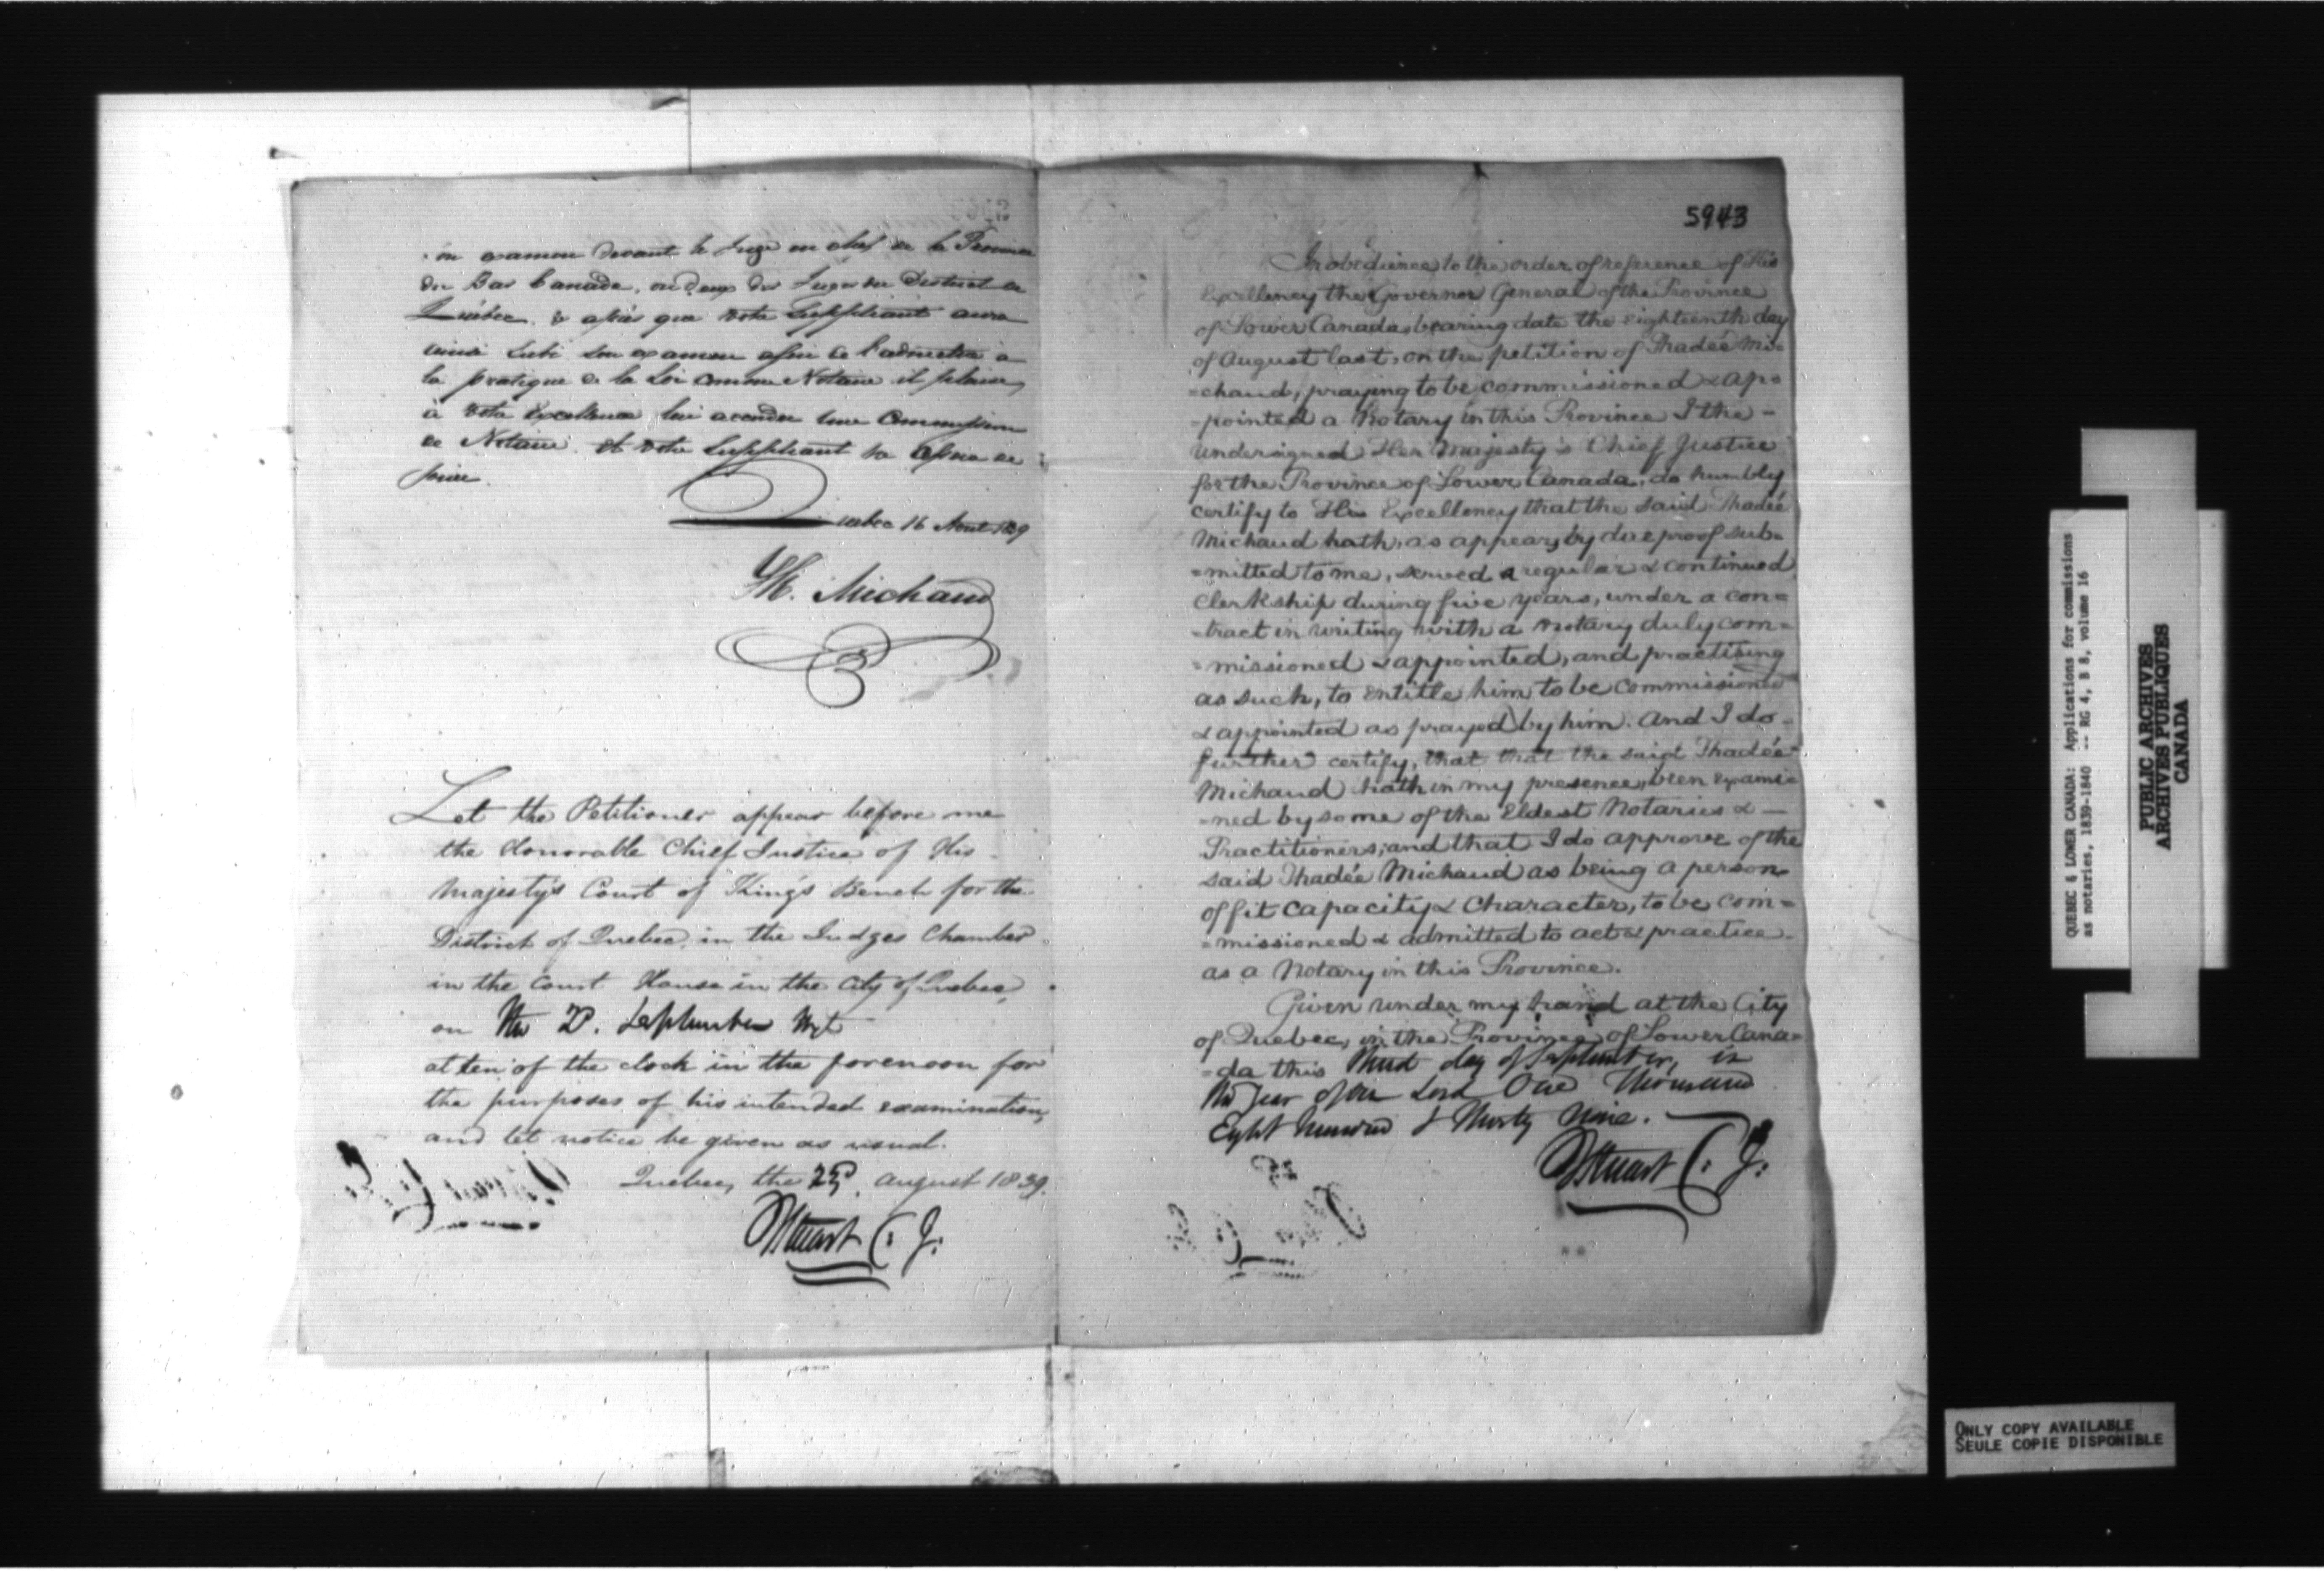 son examen devant le Juge en chef de la Province
du Bas Canada, ou deux des Juges du District de
Québec. & après que votre Suppliant aura
ainsi subi son examen afin de l'admettre à
la pratique de la Loi comme Notaire il plaise
à votre Excellence lui accorder une Commission
de Notaire. Et votre Suppliant ne cessera de
prier.
Quebec 16 Aout 1839
Th. Michaud
Let the Petitioner appear before me
the Honorable Chief Justice of His
Majesty's Court of King's Bench for the
District of Quebec, in the Judges Chamber
in the Court House in the City of Quebec,
on the September next
at ten of the clock in the forenoon for
the purposes of his intended examination,
and let notice be given as usual.
Quebec, the August 1839.
J Stuart C: J:
5943
In obedience to the order of reference of His
Excellency the Governor General of the Province
of Lower Canada, bearing date the eighteenth day
of August last, on the petition of Thadée Mi=
=chaud, praying to be commissioned & ap=
=pointed a Notary in this Province I the -
undersigned Her Majesty's Chief Justice
for the Province of Lower Canada, do humbly
certify to His Excellency that the said Thadée
Michaud hath, as appears by due proof sub=
=mitted to me, served a regular & continued
Clerkship during five years, under a con=
=tract in writing with a Notary duly com=
=missioned & appointed, and practising
as such, to entitle him to be commissioned
& appointed as prayed by him. And I do -
further certify, that that the said Thadée
Michaud hath in my presence, been exami=
=ned by some of the Eldest Notaries & —
Practitioners; and that I do approve of the
said Thadée Michaud as being a person
of fit capacity & Character, to be com=
=missioned & admitted to act & practice -
as a Notary in this Province.
Given under my hand at the City
of Quebec, in the Province of Lower Cana=
=da this Third day of September, in
the Year of Our Lord One Thousand
Eight Hundred & Thirty Nine. —
J Stuart C: J:
QUEBEC & LOWER CANADA: Applications for commissions
as notaries, 1839-1840 -- RG 4, B 8, volume 16
PUBLIC ARCHIVES
ARCHIVES PUBLIQUES
CANADA
ONLY COPY AVAILABLE
SEULE COPIE DISPONIBLE